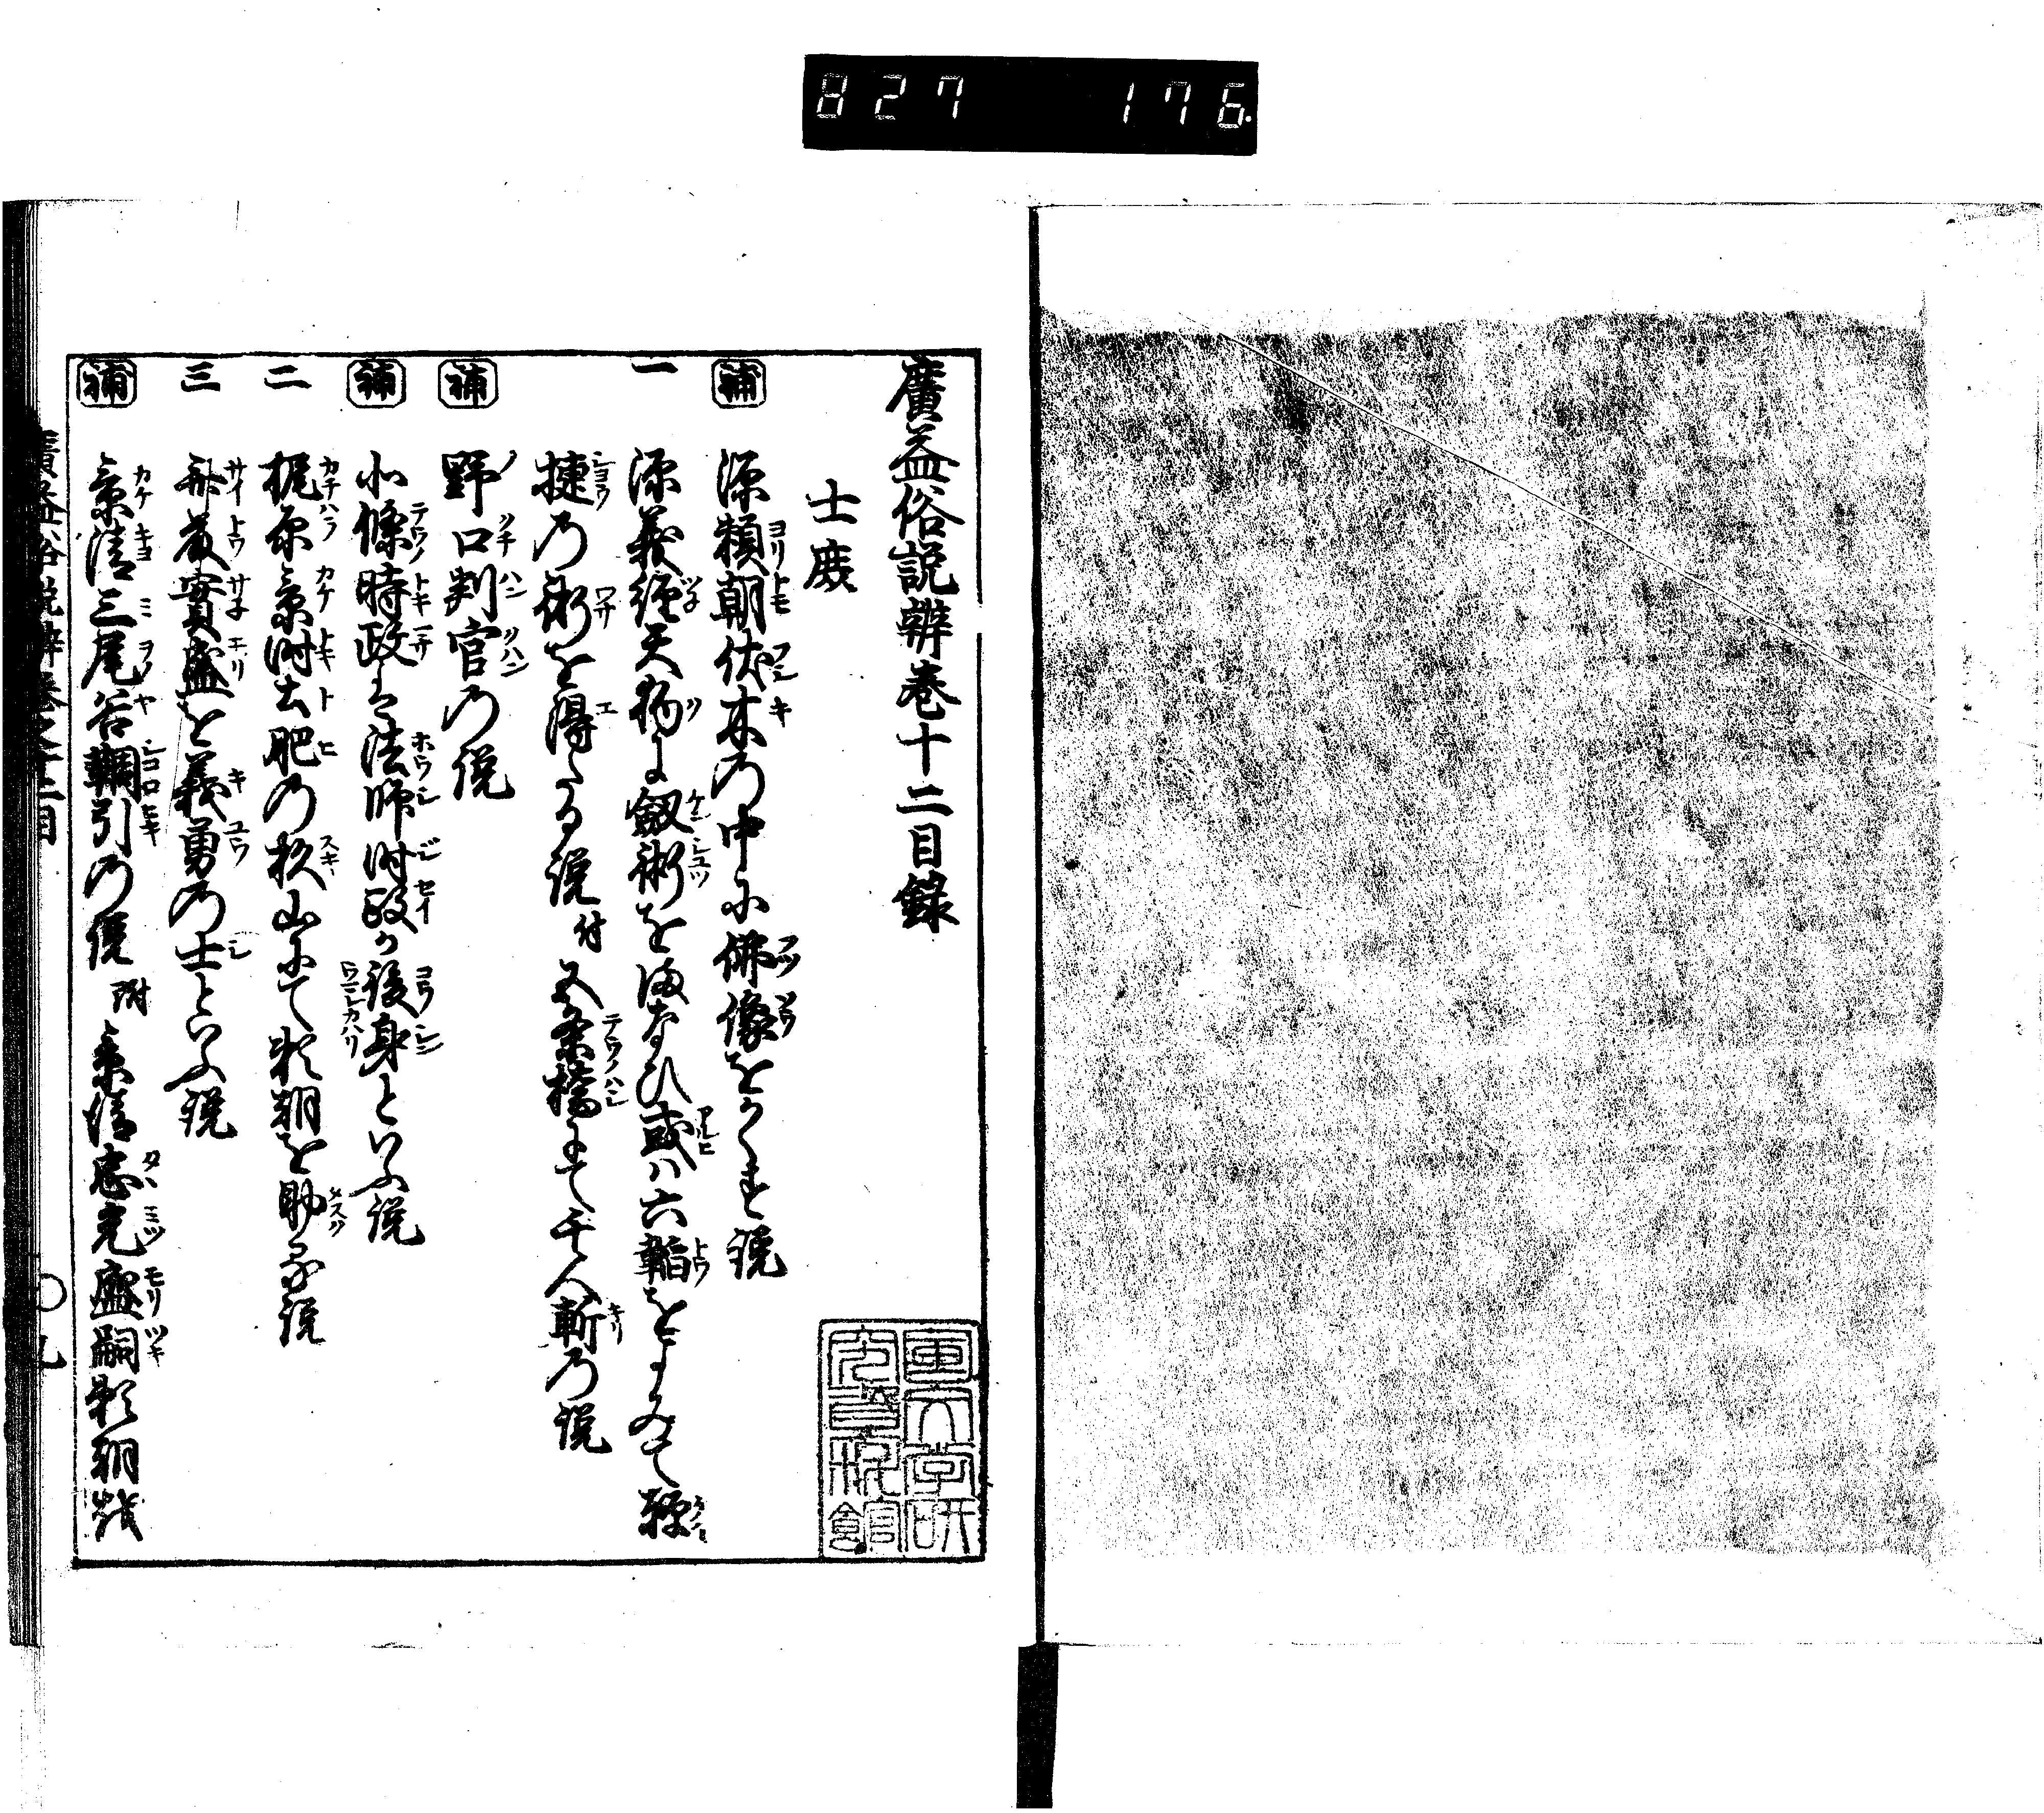 827 176
廣益俗説辨巻十二目録
士庶
補 源頼朝伏木の中に佛像をかくす説
一 源義經天狗に劔術をまなひ或ハ六韜をよみて輕
捷の術を得たる説 付 五条橋にて千人斬の説
補 野口判官の説
補 北條時政は法師時政か後身といふ説
二 梶原景時土肥の杉山にて頼朝を助る説
三 斎藤實盛を義勇の士といふ説
補 景清三尾谷錣引の説 附 景清忠光盛嗣頼朝公
廣益俗説辨巻之十二目
〇九
国文学研
究資料館